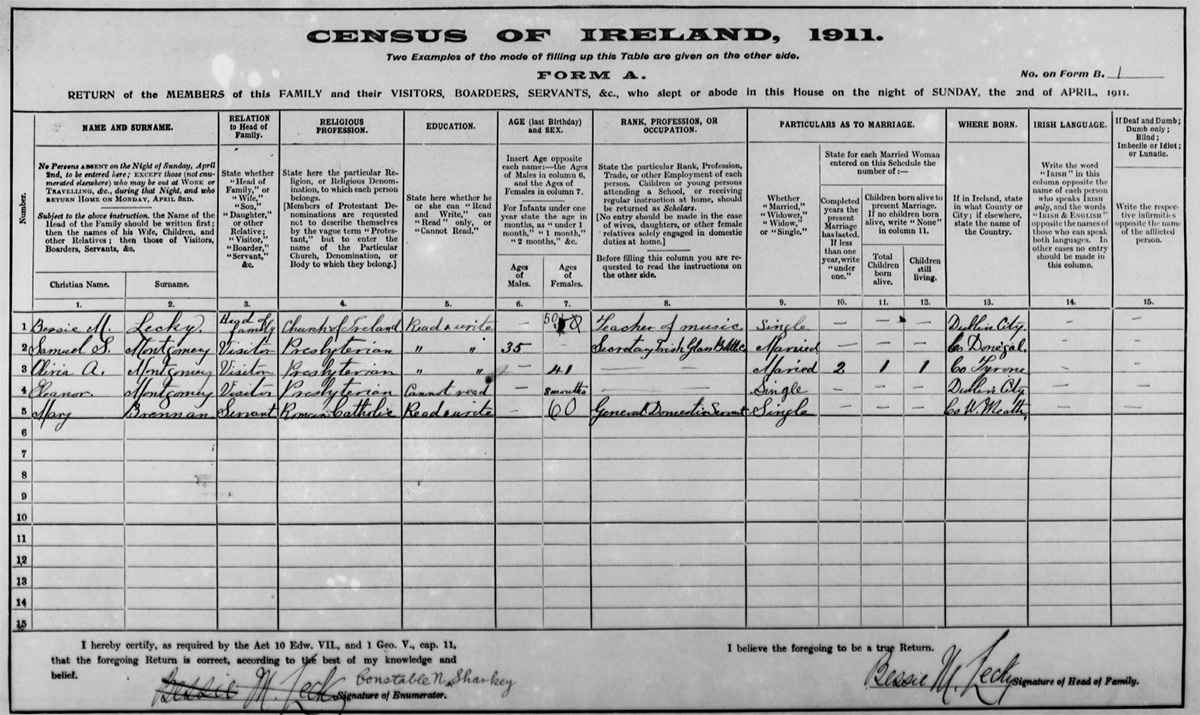 CENSUS OF IRELAND, 1911.
Two Examples of the mode of filling up this Table are given on the other side.
FORM A.
No. on Form B. 1
RETURN of the MEMBERS of this FAMILY and their VISITORS, BOARDERS, SERVANTS, &c., who slept or abode in this House on the night of SUNDAY, the 2nd of APRIL, 1911.
Number.
NAME AND SURNAME.
No Persons ABSENT on the Night of Sunday, April
2nd, to be entered here; EXCEPT those (not enu-
merated elsewhere) who may be out at WORK or
TRAVELLING, &c., during that Night, and who
RETURN HOME ON MONDAY, APRIL 3RD.
Subject to the above instruction, the Name of the
Head of the Family should be written first;
then the names of his Wife, Children, and
other Relatives; then those of Visitors,
Boarders, Servants, &c.
Christian Name.
Surname.
RELATION
to Head of
Family.
State whether
"Head of
Family," or
"Wife,"
"Son,"
"Daughter,"
or other
Relative;
"Visitor,"
"Boarder,"
"Servant,"
&c.
RELIGIOUS
PROFESSION.
State here the particular Re-
ligion, or Religious Denom-
ination, to which each person
belongs.
[Members of Protestant De-
nominations are requested
not to describe themselves
by the vague term "Protes-
tant," but to enter the
name of the Particular
Church, Denomination, or
Body to which they belong.]
EDUCATION.
State here whether he
or she can "Read
and Write," can
"Read" only, or
"Cannot Read."
AGE (last Birthday)
and SEX.
Insert Age opposite
each name:—the Ages
of Males in column 6,
and the Ages of
Females in column 7.
For Infants under one
year state the age in
months, as "under 1
month," "1 month,"
"2 months," &c.
Ages
of
Males.
Ages
of
Females.
RANK, PROFESSION, OR
OCCUPATION.
State the particular Rank, Profession,
Trade, or other Employment of each
person. Children or young persons
attending a School, or receiving
regular instruction at home, should
be returned as Scholars.
[No entry should be made in the case
of wives, daughters, or other female
relatives solely engaged in domestic
duties at home.]
Before filling this column you are re-
quested to read the instructions on
the other side.
PARTICULARS AS TO MARRIAGE.
Whether
"Married,"
"Widower,"
"Widow,"
or "Single."
State for each Married Woman
entered on this Schedule the
number of:—
Completed
years the
present
Marriage
has lasted.
If less
than one
year, write
"under
one."
Children born alive to
present Marriage.
If no children born
alive, write "None"
in column 11.
Total
Children
born
alive.
Children
still
living.
WHERE BORN.
If in Ireland, state
in what County or
City; if elsewhere,
state the name of
the Country.
IRISH LANGUAGE.
Write the word
"IRISH" in this
column opposite the
name of each person
who speaks IRISH
only, and the words
"IRISH & ENGLISH"
opposite the names of
those who can speak
both languages. In
other cases no entry
should be made in
this column.
If Deaf and Dumb;
Dumb only;
Blind;
Imbecile or Idiot;
or Lunatic.
Write the respec-
tive infirmities
opposite the name
of the afflicted
person.
1. 2. 3. 4. 5. 6. 7. 8. 9. 10. 11. 12. 13. 14. 15.
1 Bessie M. Lecky. Head of Family Church of Ireland Read & write — 50 Teacher of music Single — — — Dublin City. — —
2 Samuel S. Montgomery Visitor Presbyterian " " 35 — Secretary Irish Glass Bottle Married — — — Co Donegal. — —
3 A. Montgomery Visitor Presbyterian " " — 41 — — — Married 2 1 1 Co Tyrone — —
4 Eleanor Montgomery Visitor Presbyterian Cannot read — 8 months — — Single — — — Dublin City — —
5 Mary Brennan Servant Roman Catholic Read & write — 60 General Domestic Servant Single — — — Co W. Meath, — —
6
7
8
9
10
11
12
13
14
15
I hereby certify, as required by the Act 10 Edw. VII., and 1 Geo. V., cap. 11,
that the foregoing Return is correct, according to the best of my knowledge and
belief.
Bessie M. Lecky Constable N. Sharkey
Signature of Enumerator.
I believe the foregoing to be a true Return.
Bessie M. Lecky Signature of Head of Family.